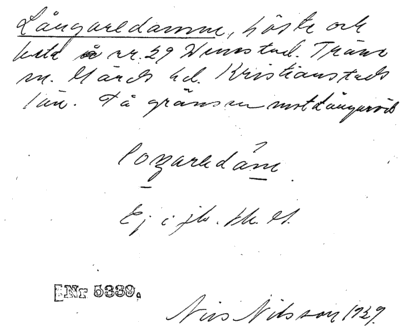 Långaredamm, höske och
bete å nr. 29 Wemstad. Träne
sn. Gärds hd. Kristianstads
län. På gränsen mot Långaröd
longaredàm
Ej i jb.
ENr 5339.
Nils Nilsson 1929.